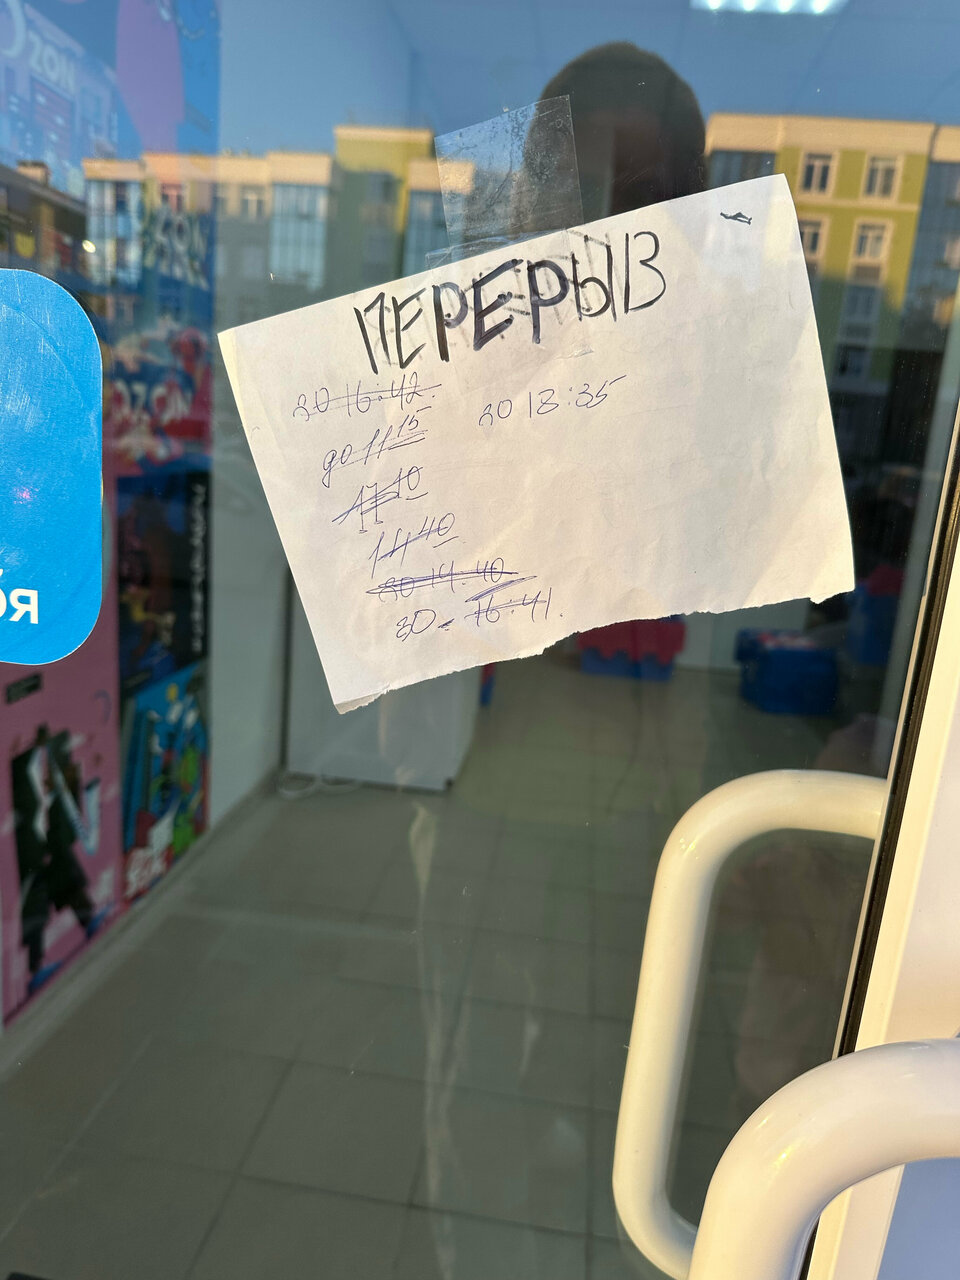 ПЕРЕРЫВ
до 16:42.
до 11 15
17 10
14 40
до 14:40
до 16:41.
до 13:35
OZON
Я